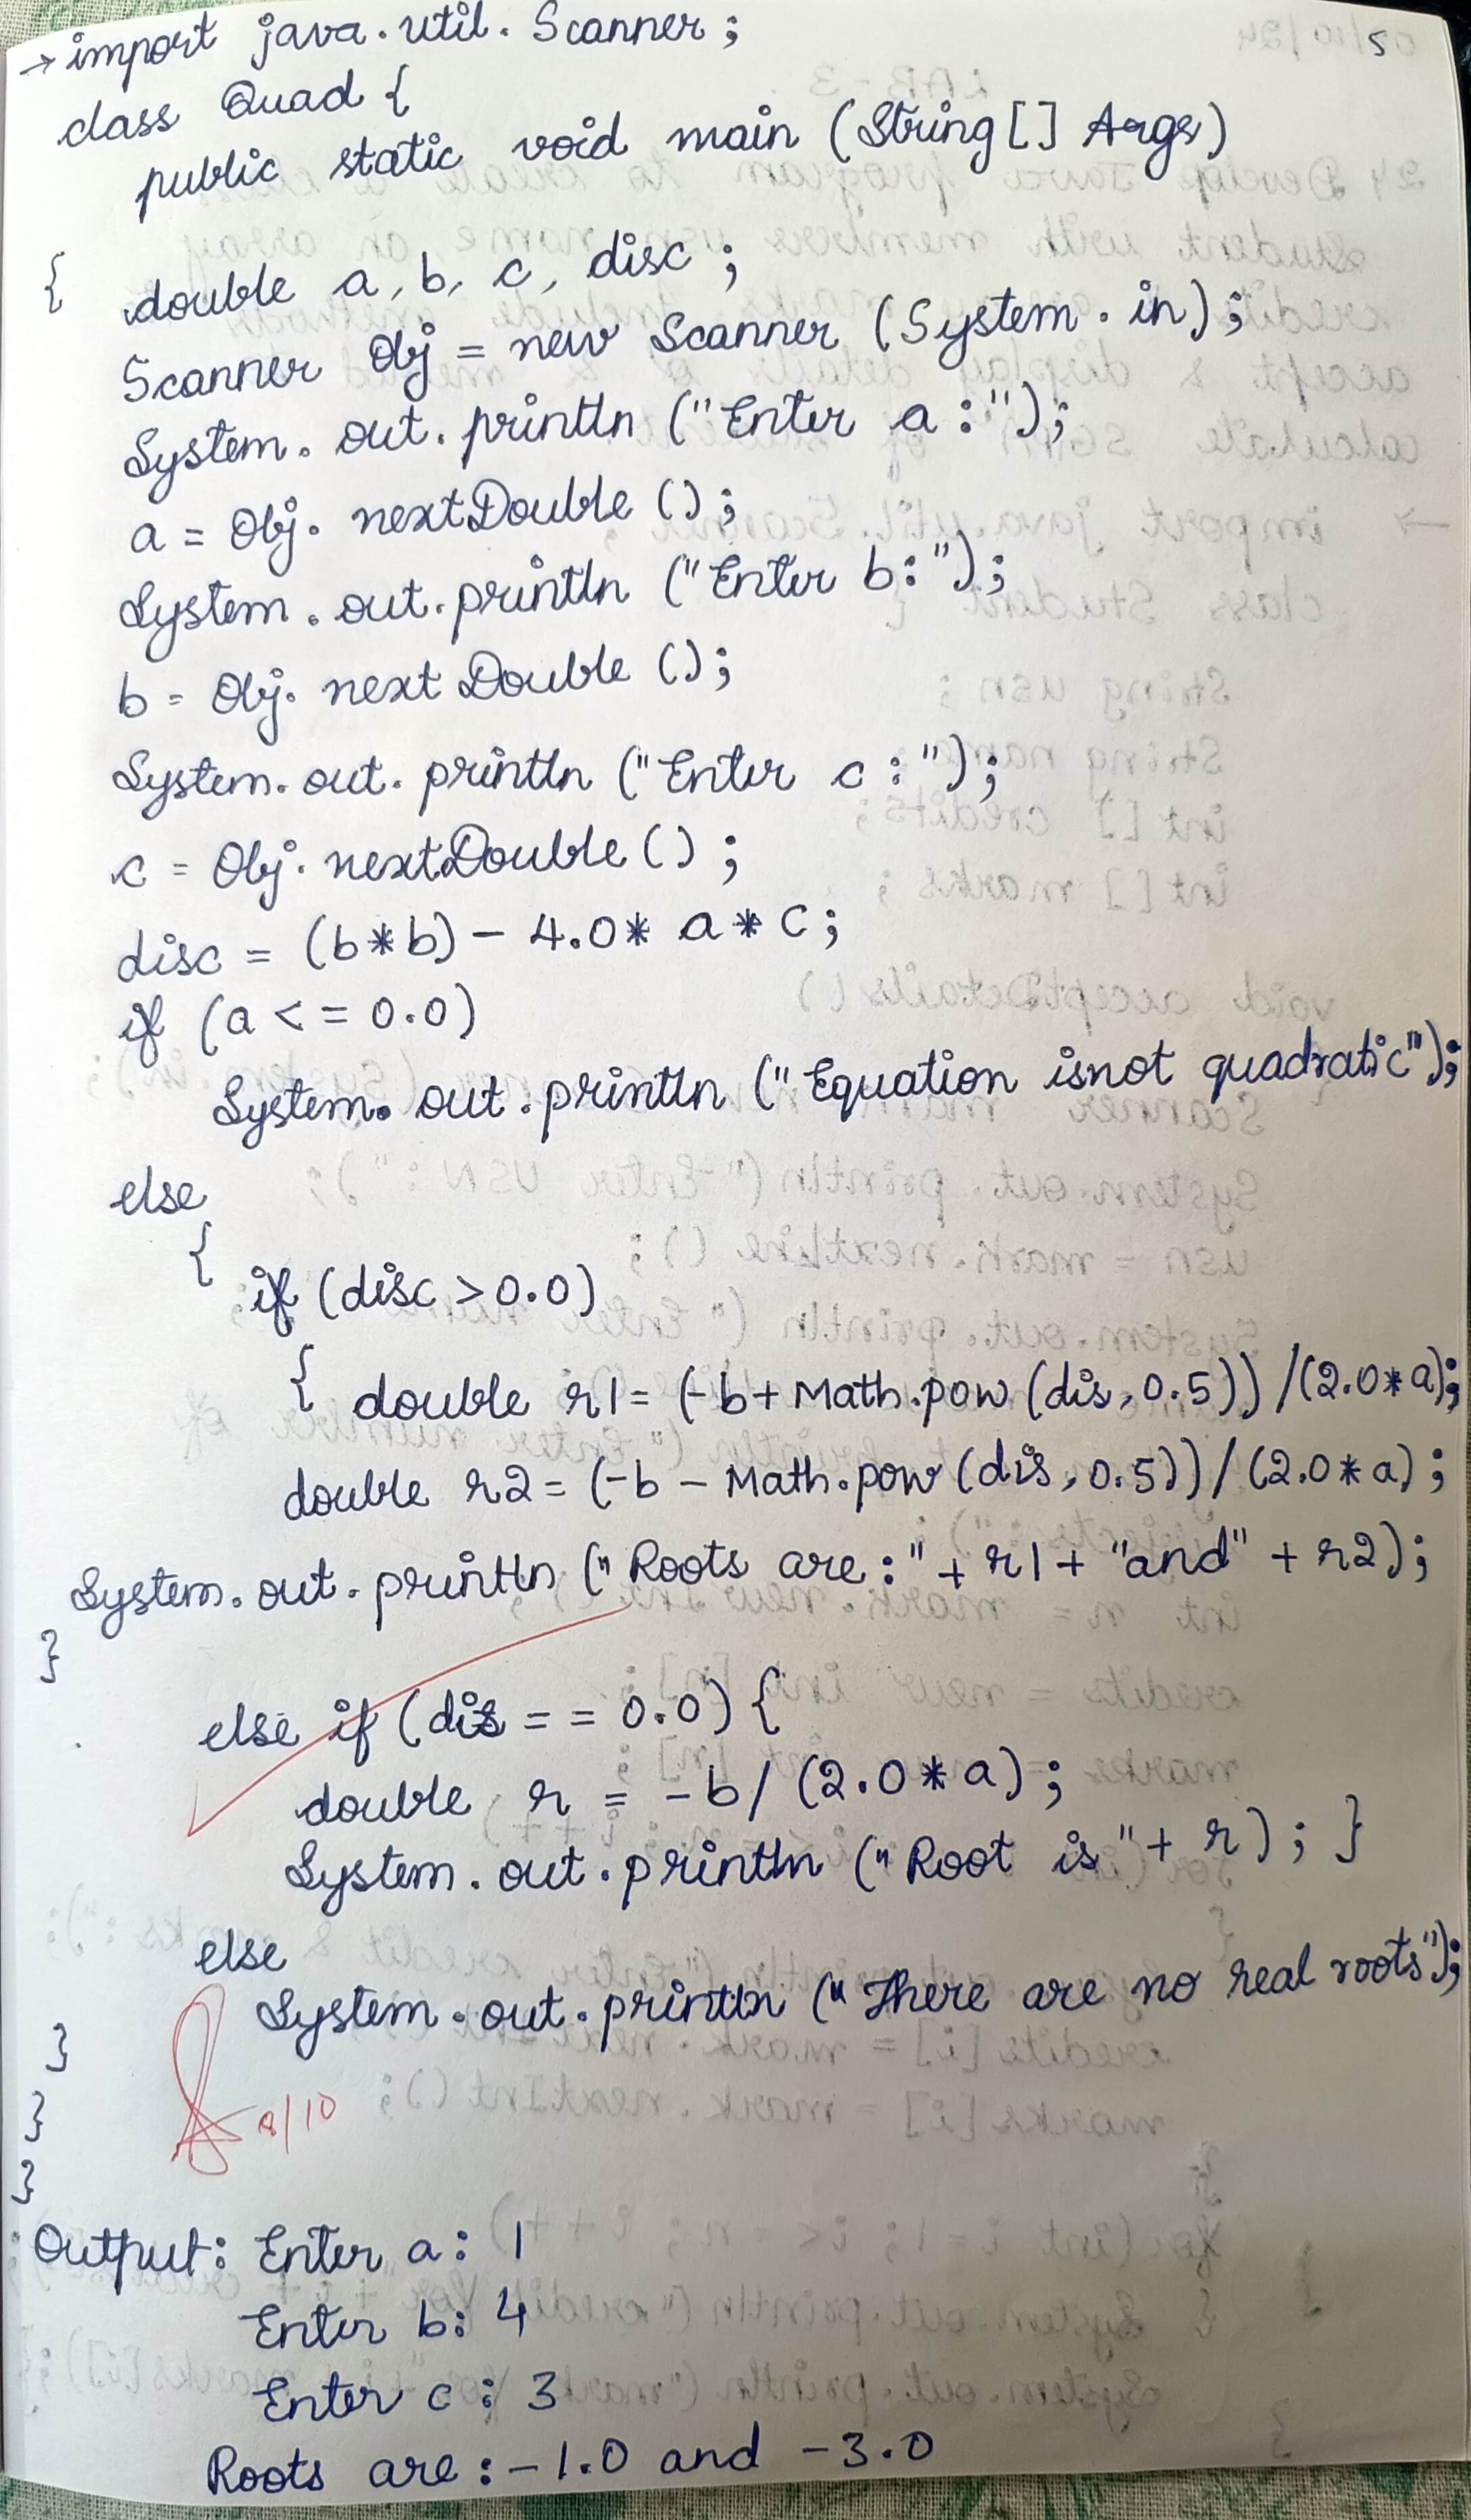 → import java.util.Scanner;
class Quad {
public static void main (String [] Args)
{ double a, b, c, disc;
Scanner Obj = new Scanner (System.in);
System.out.println ("Enter a:");
a = Obj.nextDouble ();
System.out.println ("Enter b:");
b = Obj.nextDouble ();
System.out.println ("Enter c:");
c = Obj.nextDouble ();
disc = (b*b) - 4.0* a * c;
if (a <= 0.0)
System.out.println ("Equation isnot quadratic");
else
{ if (disc > 0.0)
{ double r1 = (-b + Math.pow (dis, 0.5)) / (2.0*a);
double r2 = (-b - Math.pow (dis, 0.5)) / (2.0*a);
System.out.println ("Roots are:" + r1 + "and" + r2);
}
else if (dis == 0.0) {
double r = -b / (2.0*a);
System.out.println ("Root is" + r); }
else
System.out.println ("There are no real roots");
}
}
8/10
}
Output: Enter a: 1
Enter b: 4
Enter c: 3
Roots are: -1.0 and -3.0